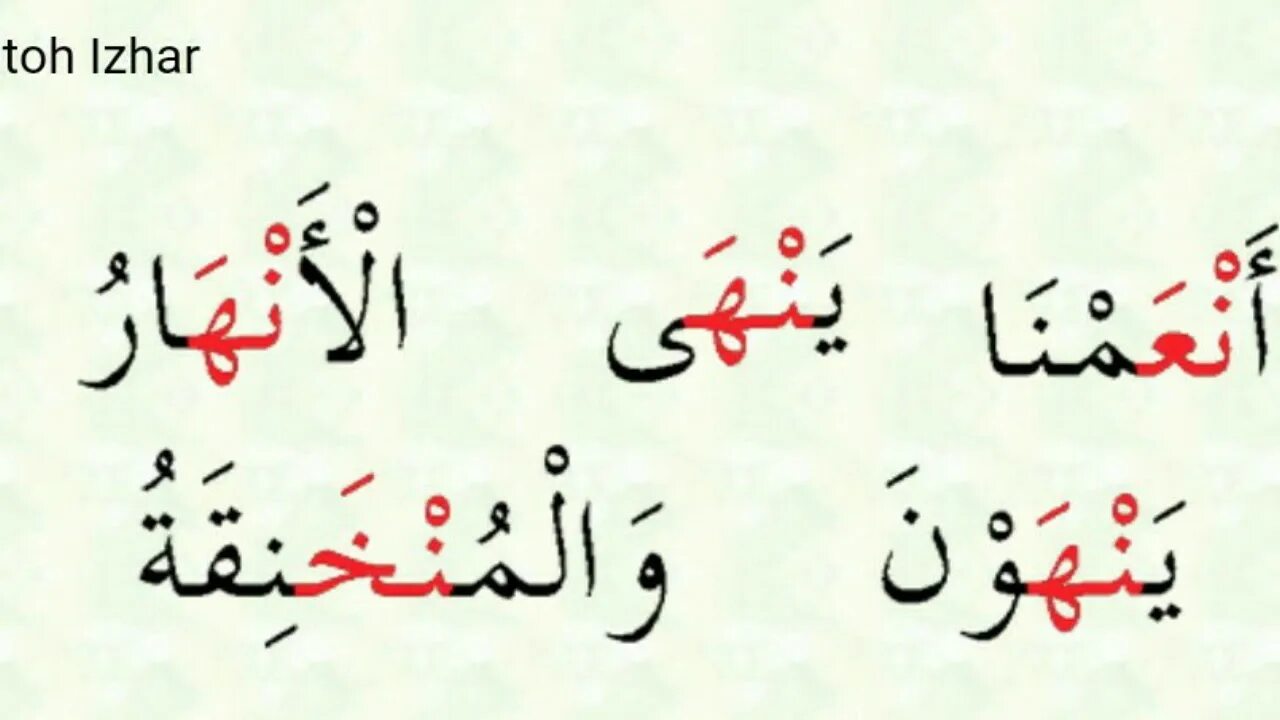 toh Izhar
أَنْعَمْنَا يَنْهَى الْأَنْهَارُ
يَنْهَوْنَ وَالْمُنْخَنِقَةُ